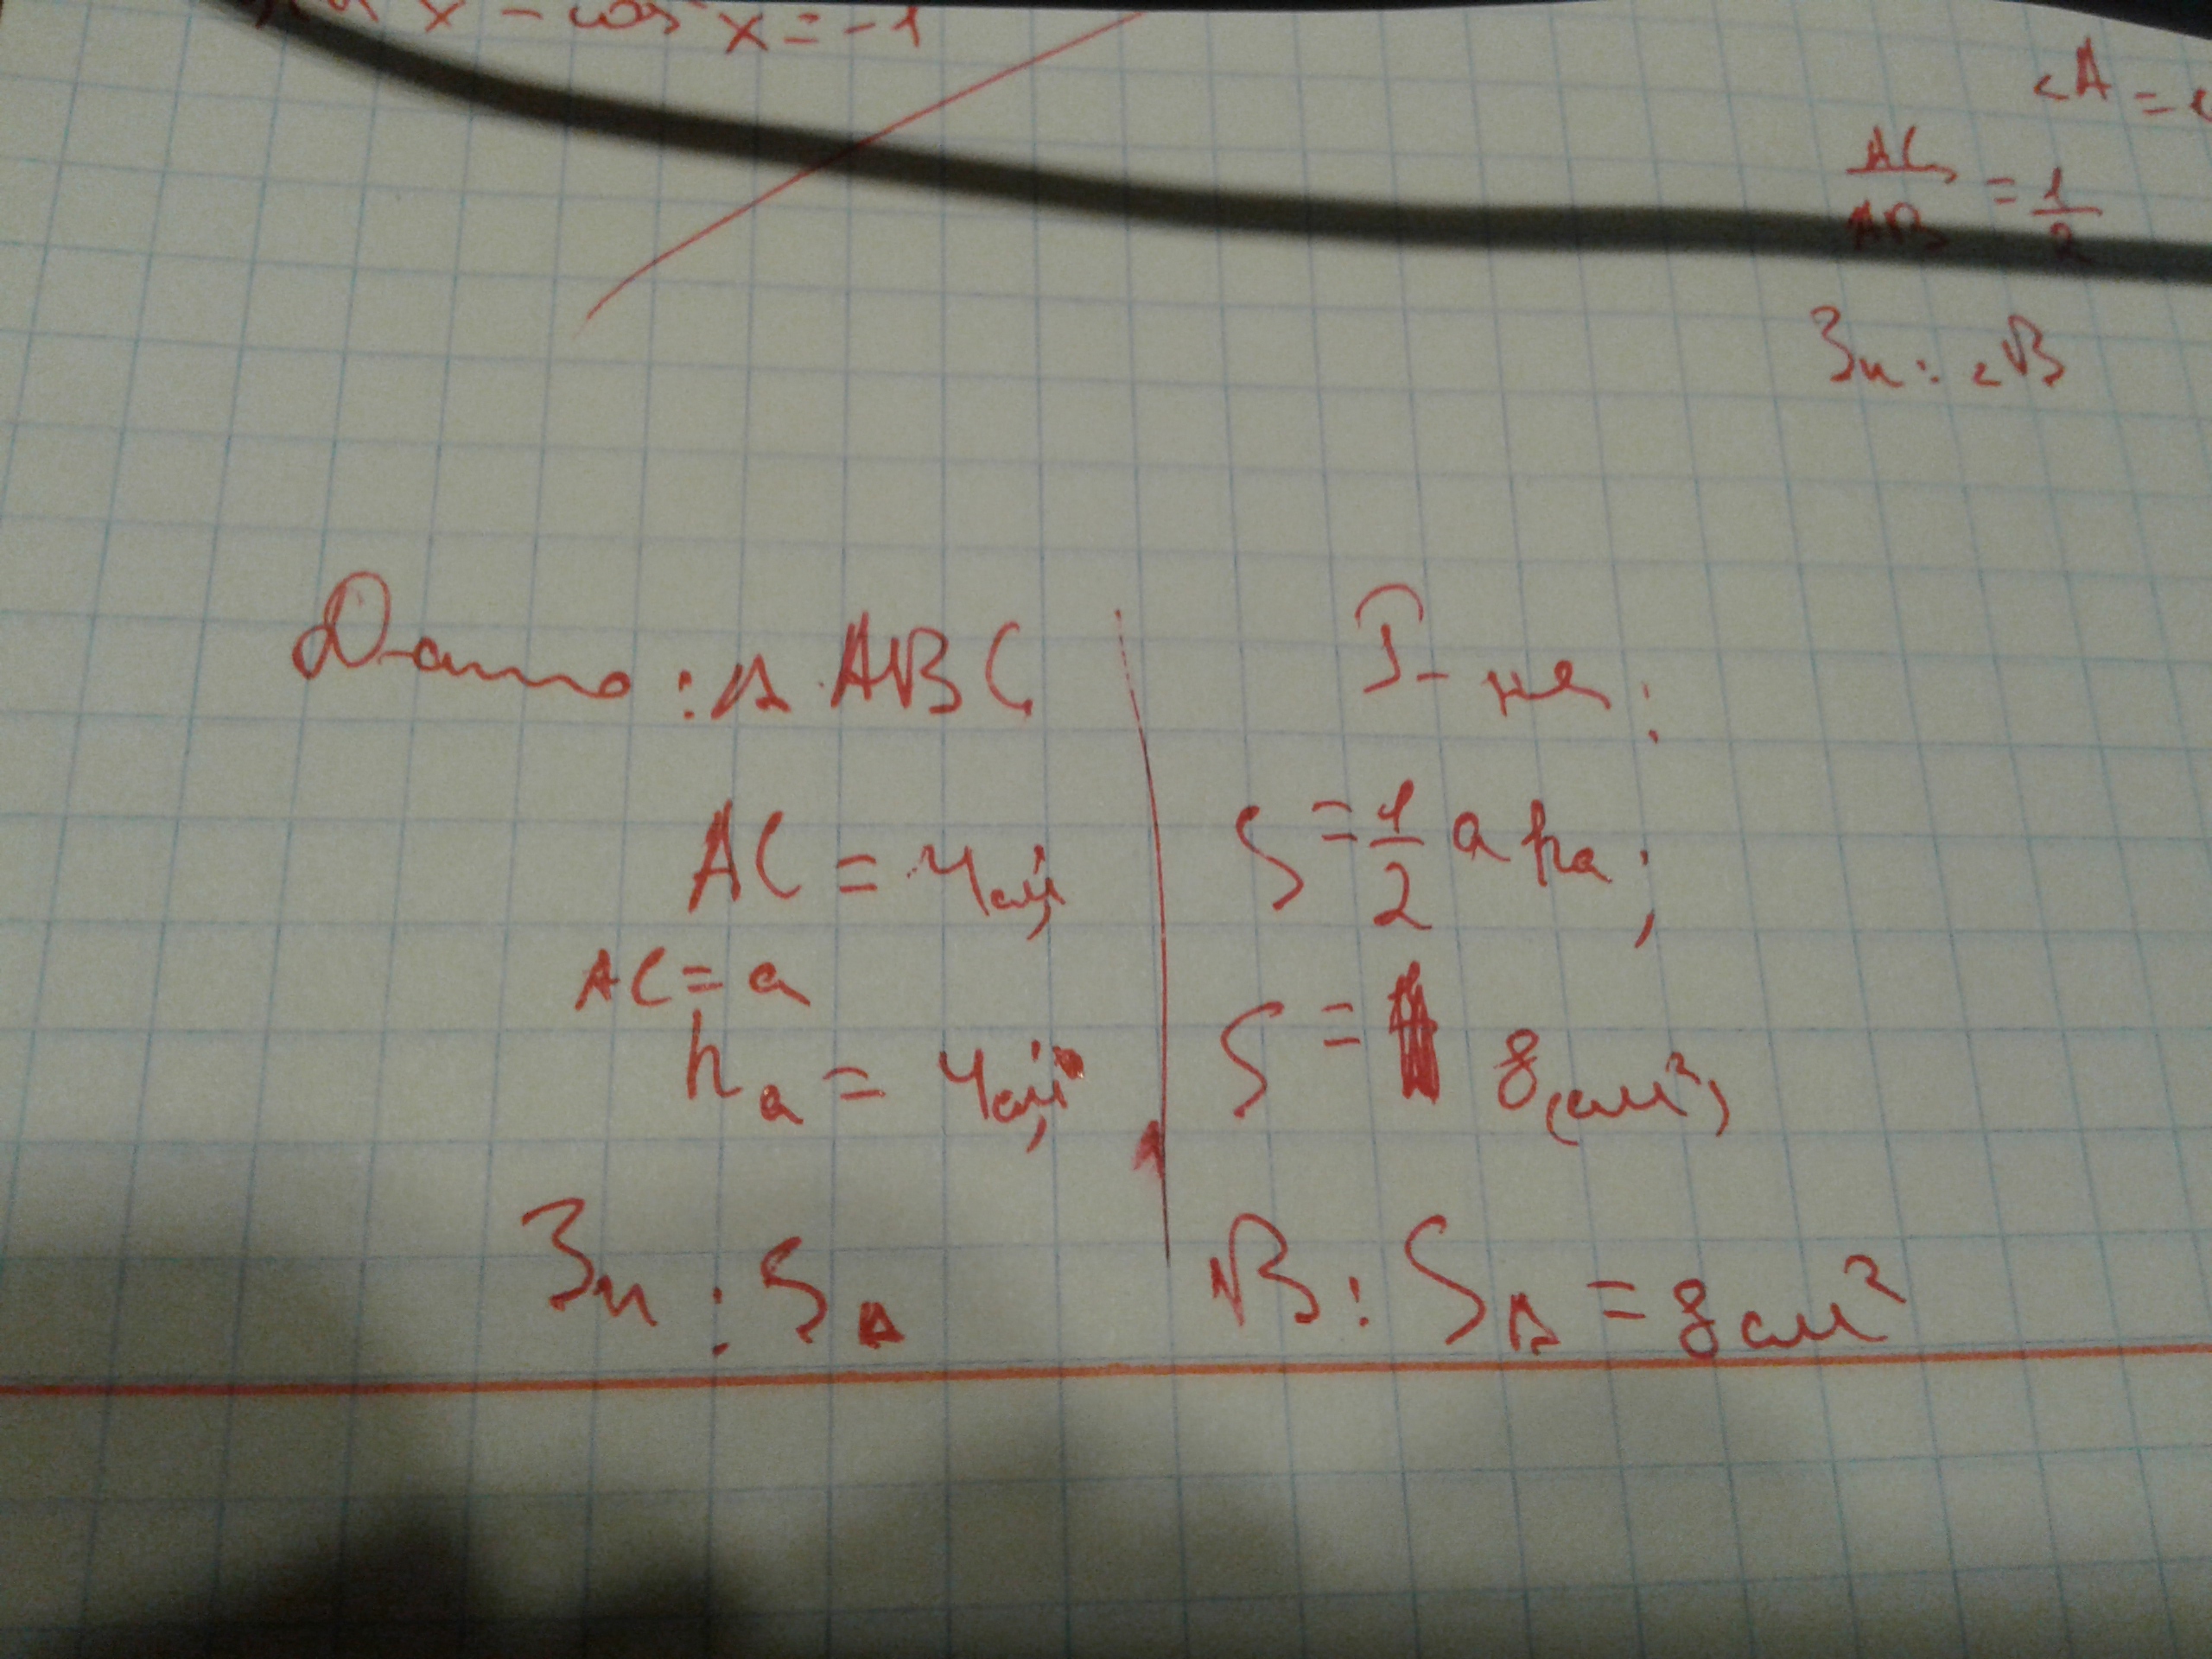 x - cos x = -1
∠A =
AC/AB = 1/2
Зн: ∠B
Дано: Δ ABC
AC = 4см;
AC = a
hₐ = 4см;
Зн: S Δ
Р-ня:
S = 1/2 a hₐ;
S = 8(см²)
В: S Δ = 8см²